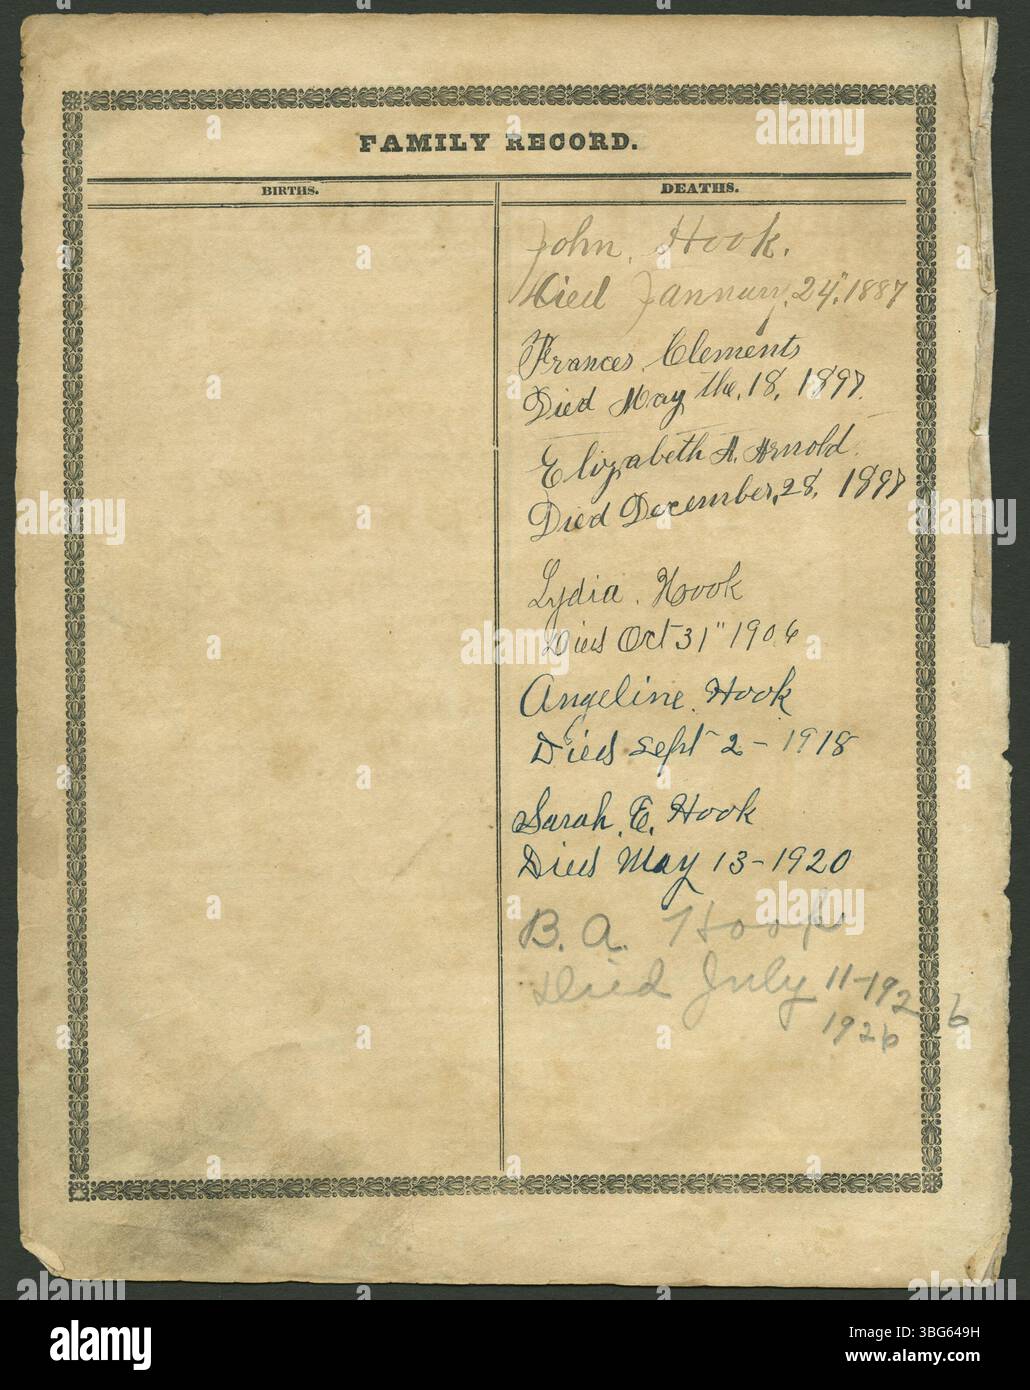 FAMILY RECORD.
BIRTHS.
DEATHS.
John. Hook.
Died January, 24", 1887
Frances. Clements
Died May the, 18, 1897.
Elizabeth A. Arnold.
Died December, 28, 1897
Lydia. Hook
Died Oct 31" 1906
Angeline. Hook
Died Sept 2 - 1918
Sarah. E. Hook
Died May 13 - 1920
B. A.
Died July 11-1926
1926
alamy
Image ID: 3BG649H
www.alamy.com